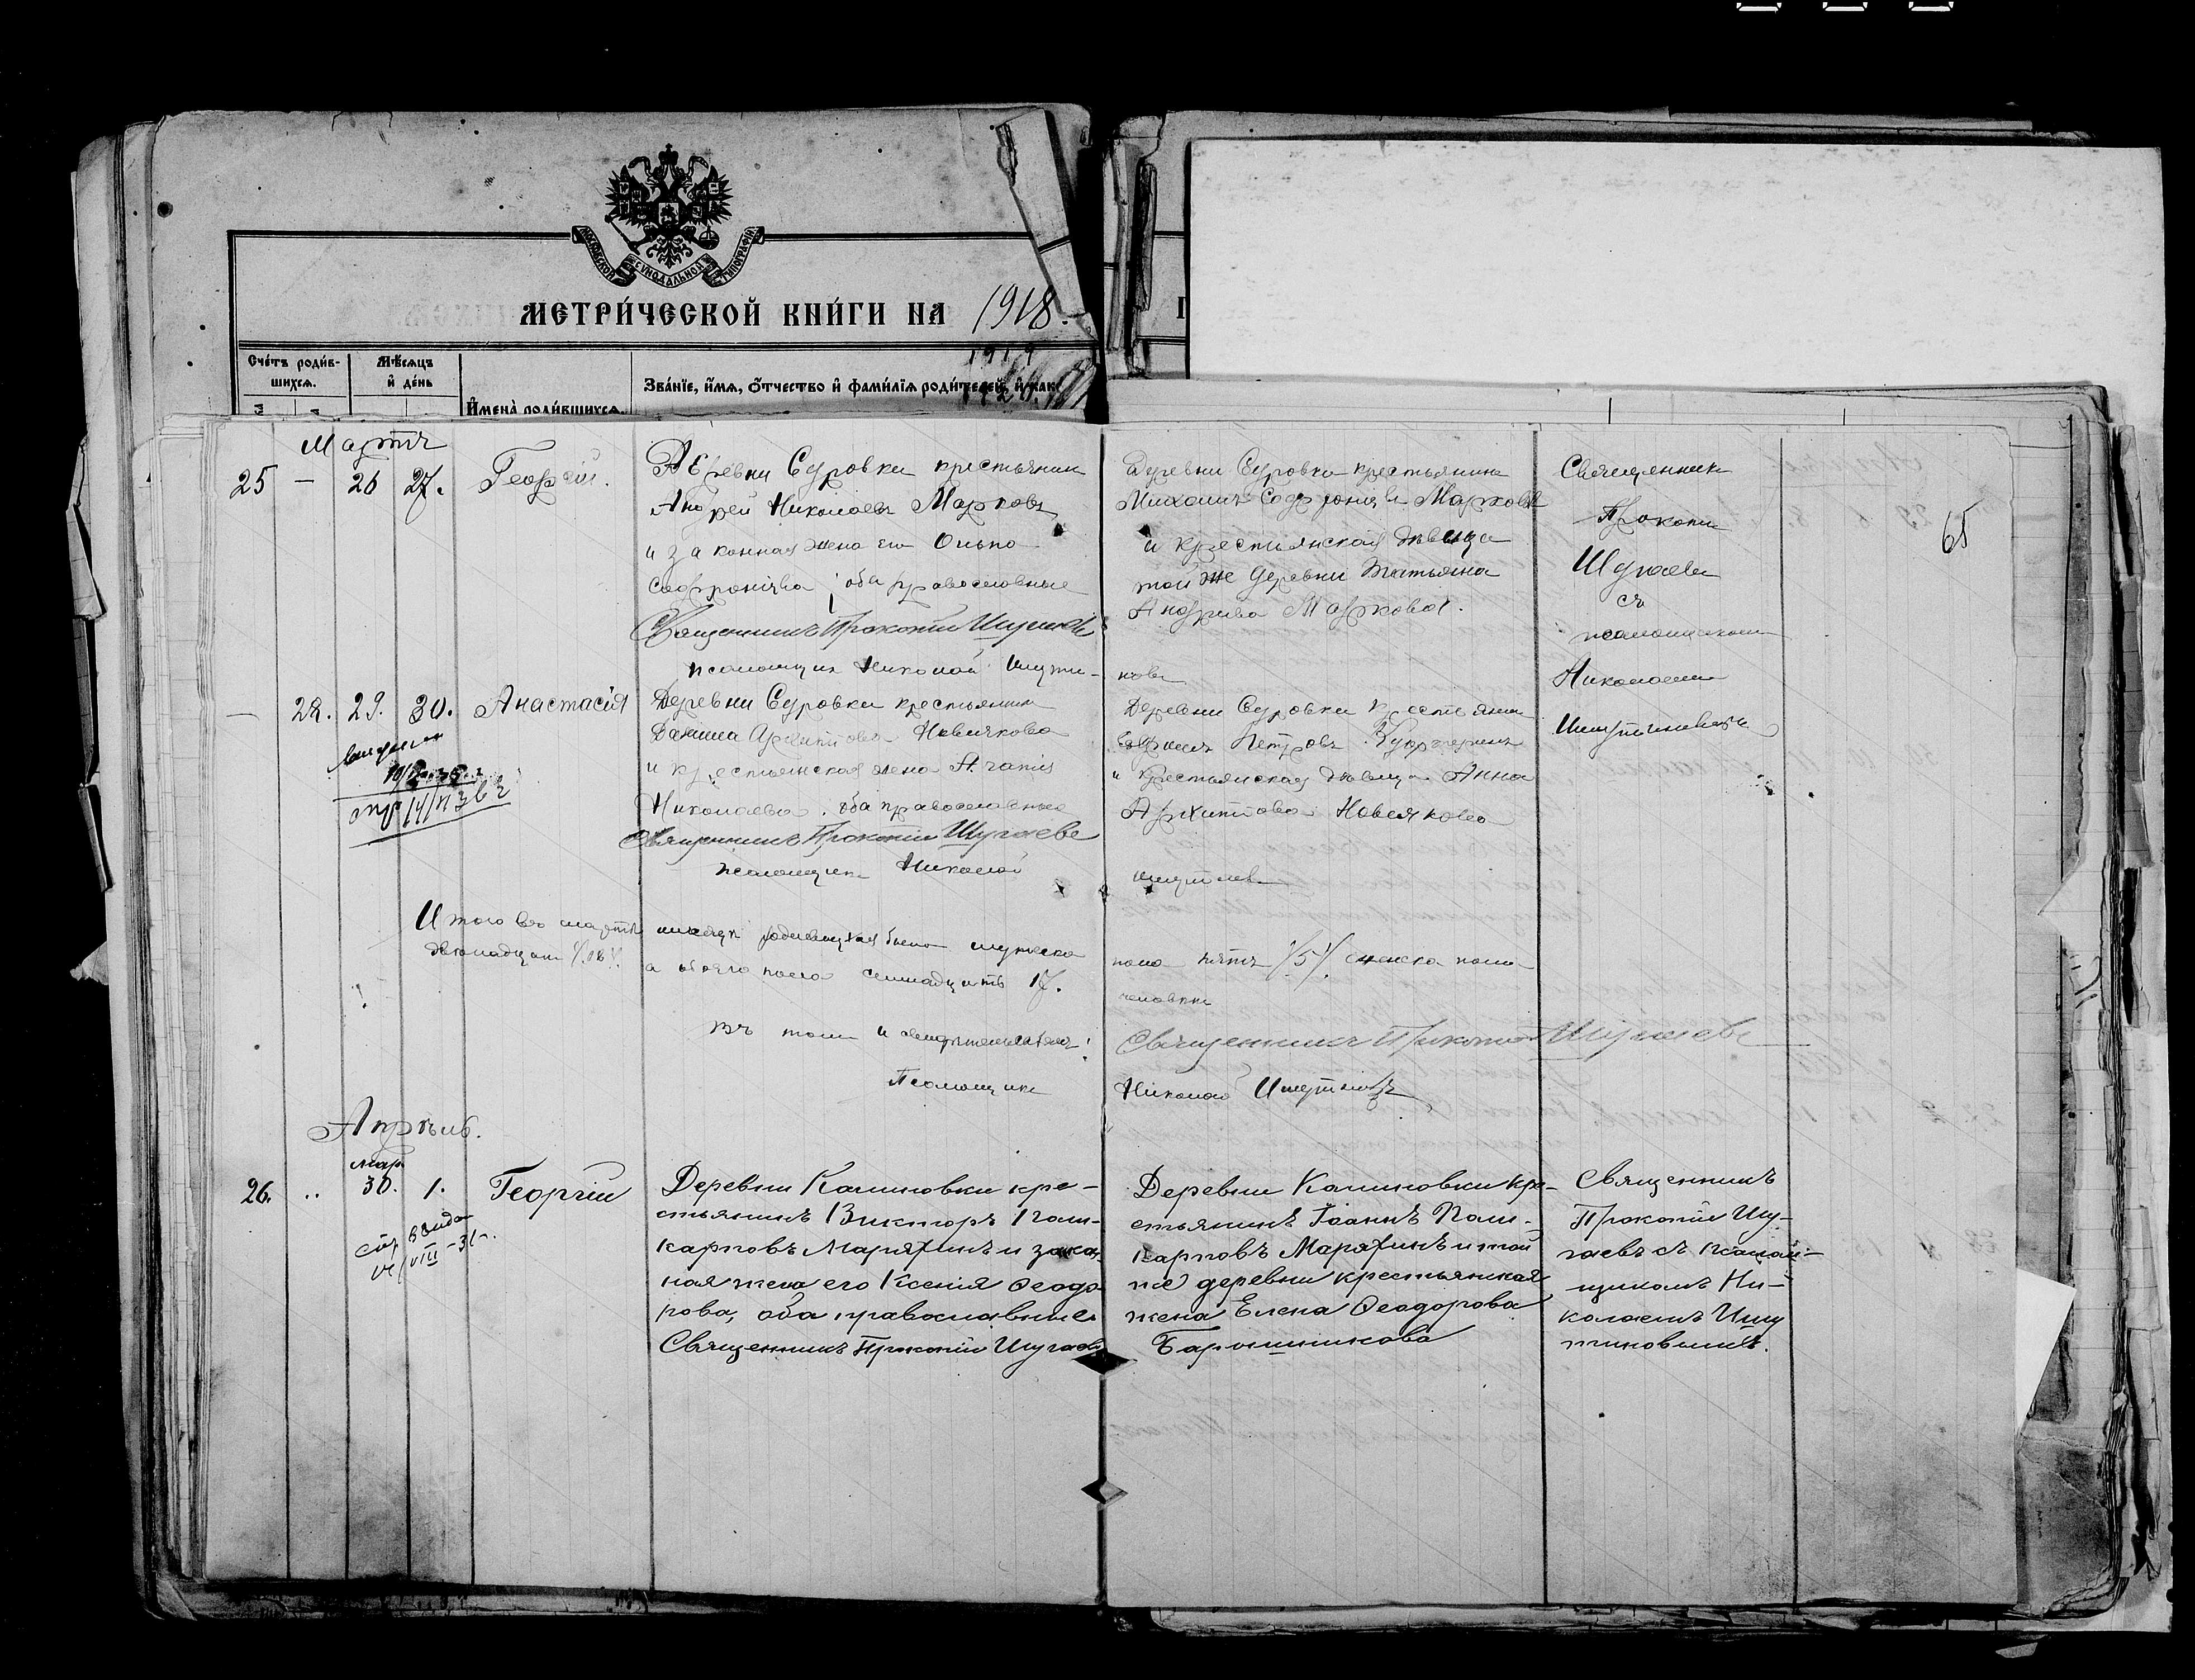 МОСКОВСКОЙ СѴНОДАЛЬНОЙ ТИПОГРАФІИ
МЕТРИ́ЧЕСКОЙ КНИ́ГИ НА 1918.
1919
Сче́тъ роди́в-
шихся.
Мѣ́сяцъ
и҆ де́нь
И҆мена̀ роди́вшихся.
Зва́нїе, и҆́мя, ѻ҆́тчество и҆ фами́лїя роди́телей, и҆ как
Мартъ
25 — 26 27. Георгій.
Деревни Суровки крестьянин
Андрей Николаевъ Марковъ
и законная жена его
Софроніева; оба православные
Священникъ Прокопій Шугаевъ
псаломщик Николай Ишути-
новъ
Деревни Суровки крестьянин
Михаилъ Софроніевъ Марковъ
и крестьянская дѣвица
той же деревни Татьяна
Андреева Маркова.
Священник
Прокопій
Шугаевъ
съ
псаломщиком
Николаем
Ишутиновымъ
65
— 28. 29. 30. Анастасія
Деревни Суровки крестьянин
Архиппов Новичкова
и крестьянская жена
Николаева, оба православные
Священникъ Прокопій Шугаевъ
псаломщик Николай
Деревни Суровки крестьянин
Петровъ
и крестьянская дѣвица Анна
Архиппова
Итого въ мартѣ мѣсяцѣ родившихся было мужеска
пола пять /5/ женска пола
двѣнадцать /12/. а обоего пола семнадцать 17.
человѣкъ
Въ томъ и свидѣтельствуемъ:
Священникъ Прокопій Шугаевъ
Псаломщик
Николай Ишутиновъ
Апрѣль.
мар.
26. .. 30. 1. Георгій
VIII-31 г.
Деревни Калиновки кре-
стьянинъ Викторъ Поли-
карповъ Маряхинъ и закон-
ная жена его Ксенія Ѳеодо-
рова, оба православные
Священникъ Прокопій Шугаевъ
Деревни Калиновки кре-
стьянинъ Іоаннъ Поли-
карповъ Маряхинъ и той
же деревни крестьянская
жена Елена Ѳеодорова
Барышникова
Священникъ
Прокопій Шу-
гаевъ съ псалом-
щикомъ Ни-
колаемъ Ишу
тиновымъ.